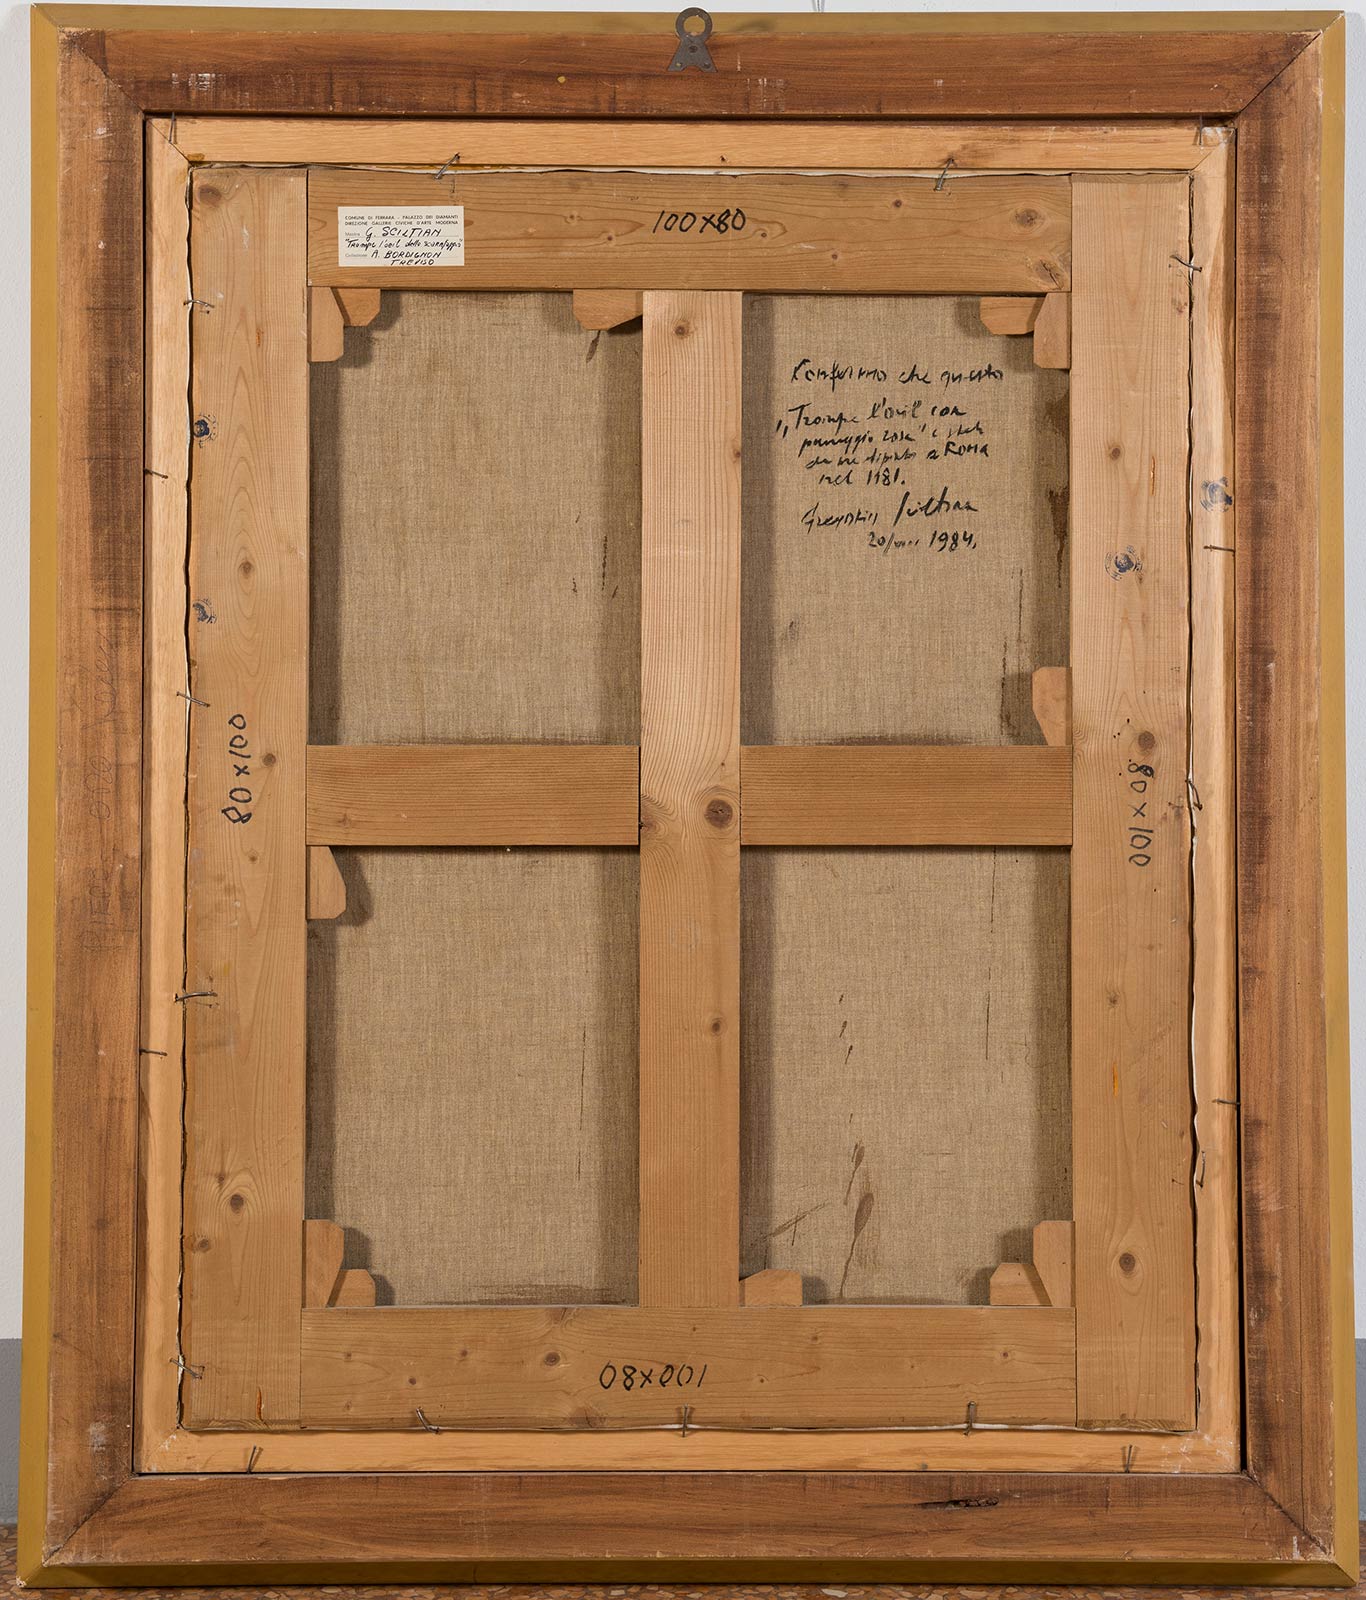 COMUNE DI FERRARA - PALAZZO DEI DIAMANTI
DIREZIONE GALLERIE CIVICHE D'ARTE MODERNA
Mostra G. SCILTIAN
"Trompe l'oeil della
Collezione A. BORDIGNON
TREVISO
100x80
Confermo che questo
"Trompe l'oeil con
panneggio rosa" è stato
da me dipinto a Roma
nel 1981.
Gregorio Sciltian
20/ 1984.
80x100
80x100
100x80